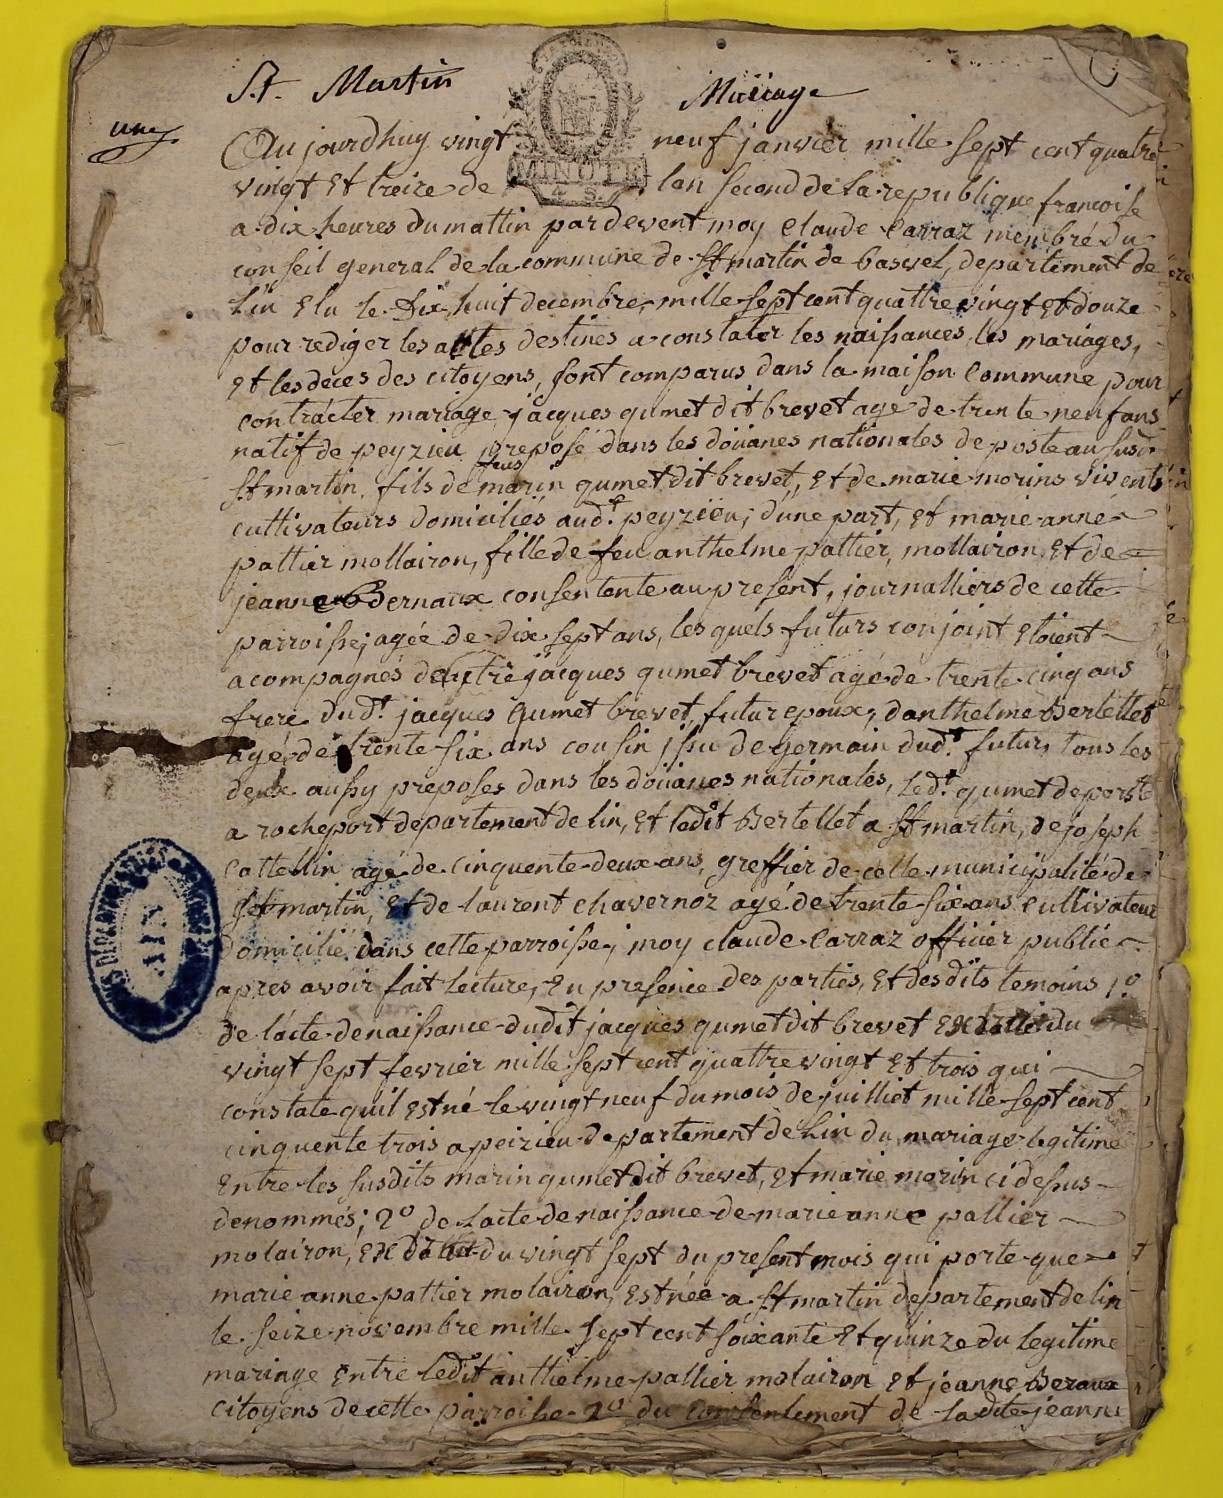 St. Martin Mariage
une
Aujourdhuy vingt neuf janvier mille sept cent quatre
MINUTE
4. S.
vingt Et treize de lan second de la republique francoise
a dix heures du mattin pardevent moy Claude Carraz membré du
conseil general de la commune de St martin de bavel, departement de
Lin Elu le Dix huit decembre, mille sept cent quattre vingt et douze
pour rediger les actes destines a constater les naissances, les mariages,
Et les deces des citoyens, sont comparus dans la maison commune pour
contracter mariage jacques gumet dit brevet agé de trente neuf ans
natif de peyzieu preposé dans les doüanes nationales de poste au susd
St martin, fils de marin gumet dit brevet, Et de marie morins vivents
cultivateurs domiciliés aud.t peyzieu; d'une part, et marie anne
pallier mollairon, fille de feu anthelme pallier, mollairon Et de
jeanne Bernaux consentente au present, journalliers de cette
parroisse; agée de dix sept ans, les quels futurs conjoint Etoient
acompagnés dautre jacques gumet brevet agé de trente cinq ans
frere dud.t jacques Gumet brevet futur epoux, danthelme Bertellet
agé de trente six ans cousin issu de germain dud.t futur, tous les
deux aussy preposes dans les doüanes nationales, led.t gumet de poste
a rocheport departement de lin, Et ledit Bertellet a St martin, de joseph
Cattelin agé de cinquente deux ans, greffier de cette municipalité de
St martin, Et de laurent chavernoz agé de trente six ans cultivateur
domicilié dans cette parroisse; moy claude Carraz officier public
AIN
apres avoir fait lecture, En presence des parties, Et desdits temoins 1.o
de lacte de naissance dudit jacques gumet dit brevet Extrait du
vingt sept fevrier mille sept cent quattre vingt Et trois qui
constate quil Est né le vingt neuf du mois de juilliet mille sept cent
cinquente trois a peizieu departement de Lin du mariage legitime
Entre les susdits marin gumet dit brevet, Et marie morin ci dessus
denommés; 2o de Lacte de naissance de marie anne pallier
molairon, du vingt sept du present mois qui porte que
marie anne pallier molairon, Est née a St martin departement de lin
le seize novembre mille sept cent soixante Et quinze du legitime
mariage Entre ledit anthelme pallier molairon Et jeanne Beraux
citoyens de cette parroisse 2o du consentement de la dite jeanne